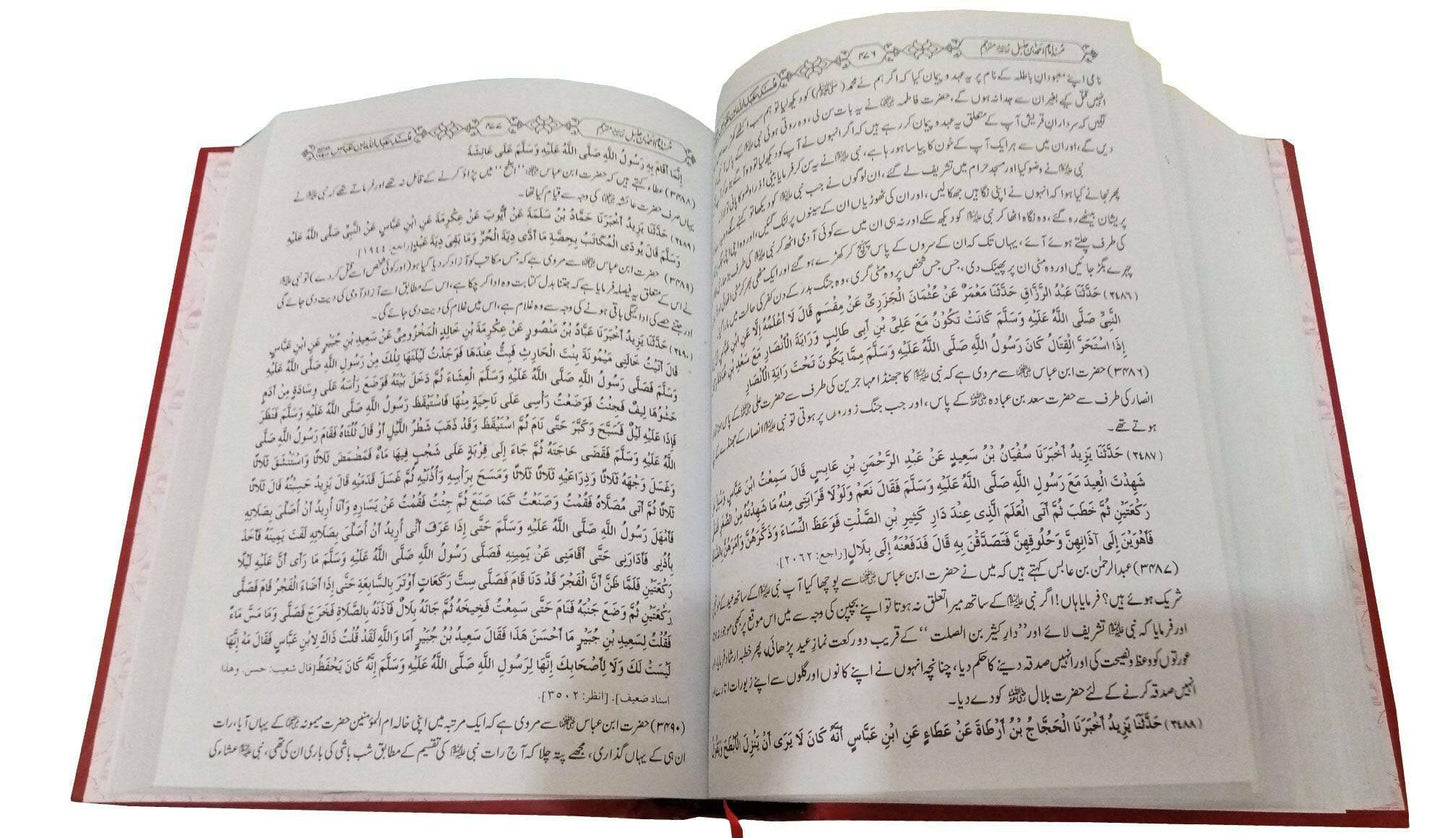 مُسند امام احمد بن حنبل مترجم ۴۷۶ مُسنَد عَبد الله بن عَبّاس
نامی اپنے معبودانِ باطلہ کے نام پر یہ عہد و پیمان کیا کہ اگر ہم نے محمد (ﷺ) کو دیکھ لیا تو ہم سب اکٹھے
انہیں قتل کیے بغیر ان سے جدا نہ ہوں گے، حضرت فاطمہ نے یہ بات سن لی، وہ روتی ہوئی نبی
لگیں کہ سردارانِ قریش آپ کے متعلق یہ عہد و پیمان کر رہے ہیں کہ اگر انہوں نے آپ کو دیکھ لیا تو وہ آگے بڑھ
دیں گے، اور ان میں سے ہر ایک آپ کے خون کا پیاسا ہو رہا ہے، نبی نے یہ سن کر فرمایا بیٹی! ذرا وضو کا پانی
نبی نے وضو کیا اور مسجدِ حرام میں تشریف لے گئے، ان لوگوں نے جب نبی کو دیکھا تو کہنے
پھر نجانے کیا ہوا کہ انہوں نے اپنی نگاہیں جھکا لیں، اور ان کی ٹھوڑیاں ان کے سینوں پر لٹک گئیں، اور وہ اپنی اپنی
پریشان بیٹھے رہ گئے، وہ نگاہ اٹھا کر نبی کو دیکھ سکے اور نہ ہی ان میں سے کوئی آدمی اٹھ کر نبی کی طرف
کی طرف چلتے ہوئے آئے، یہاں تک کہ ان کے سروں کے پاس پہنچ کر کھڑے ہو گئے اور ایک مٹھی بھر کر مٹی
چہرے بگڑ جائیں اور وہ مٹی ان پر پھینک دی، جس جس شخص پر وہ مٹی گری، وہ جنگ بدر کے دن کفر کی حالت میں مارا
(۳۴۸۶) حَدَّثَنَا عَبْدُ الرَّزَّاقِ حَدَّثَنَا مَعْمَرٌ عَنْ عُثْمَانَ الْجَزَرِيِّ عَنْ مِقْسَمٍ قَالَ لَا أَعْلَمُهُ إِلَّا عَنِ ابْنِ
النَّبِيِّ صَلَّى اللَّهُ عَلَيْهِ وَسَلَّمَ كَانَتْ تَكُونُ مَعَ عَلِيِّ بْنِ أَبِي طَالِبٍ وَرَايَةُ الْأَنْصَارِ مَعَ سَعْدِ بْنِ
إِذَا اسْتَحَرَّ الْقِتَالُ كَانَ رَسُولُ اللَّهِ صَلَّى اللَّهُ عَلَيْهِ وَسَلَّمَ مِمَّا يَكُونُ تَحْتَ رَايَةِ الْأَنْصَارِ
(۳۴۸۶) حضرت ابن عباس سے مروی ہے کہ نبی کا جھنڈا مہاجرین کی طرف سے حضرت علی کے پاس
انصار کی طرف سے حضرت سعد بن عبادہ کے پاس، اور جب جنگ زوروں پر ہوتی تو نبی انصار کے جھنڈے کے
ہوتے تھے۔
(۳۴۸۷) حَدَّثَنَا يَزِيدُ أَخْبَرَنَا سُفْيَانُ بْنُ سَعِيدٍ عَنْ عَبْدِ الرَّحْمَنِ بْنِ عَابِسٍ قَالَ سَمِعْتُ ابْنَ عَبَّاسٍ
شَهِدْتَ الْعِيدَ مَعَ رَسُولِ اللَّهِ صَلَّى اللَّهُ عَلَيْهِ وَسَلَّمَ فَقَالَ نَعَمْ وَلَوْلَا قَرَابَتِي مِنْهُ مَا شَهِدْتُهُ مِنَ الصِّغَرِ
رَكْعَتَيْنِ ثُمَّ خَطَبَ ثُمَّ أَتَى الْعَلَمَ الَّذِي عِنْدَ دَارِ كَثِيرِ بْنِ الصَّلْتِ فَوَعَظَ النِّسَاءَ وَذَكَّرَهُنَّ وَأَمَرَهُنَّ
فَأَهْوَيْنَ إِلَى آذَانِهِنَّ وَحُلُوقِهِنَّ فَتَصَدَّقْنَ بِهِ قَالَ فَدَفَعْنَهُ إِلَى بِلَالٍ [راجع: ۲۰٦۲].
(۳۴۸۷) عبدالرحمٰن بن عابس کہتے ہیں کہ میں نے حضرت ابن عباس سے پوچھا کیا آپ نبی کے ساتھ عید کے
شریک ہوئے ہیں؟ فرمایا ہاں! اگر نبی کے ساتھ میرا تعلق نہ ہوتا تو اپنے بچپن کی وجہ سے میں اس موقع پر کبھی موجود نہ
اور فرمایا کہ نبی تشریف لائے اور ”دار کثیر بن الصلت“ کے قریب دو رکعت نمازِ عید پڑھائی، پھر خطبہ ارشاد فرمایا
عورتوں کو وعظ و نصیحت کی اور انہیں صدقہ دینے کا حکم دیا، چنانچہ انہوں نے اپنے کانوں اور گلوں سے اپنے زیورات اتارے
انہیں صدقہ کرنے کے لئے حضرت بلال کو دے دیا۔
(۳۴۸۸) حَدَّثَنَا يَزِيدُ أَخْبَرَنَا الْحَجَّاجُ بْنُ أَرْطَاةَ عَنْ عَطَاءٍ عَنِ ابْنِ عَبَّاسٍ أَنَّهُ كَانَ لَا يَرَى أَنْ يَنْزِلَ الْأَبْطَحَ وَيَقُولُ
مُسند امام احمد بن حنبل مترجم ۴۷۷ مُسنَد عَبد الله بن عَبّاس
إِنَّمَا أَقَامَ بِهِ رَسُولُ اللَّهِ صَلَّى اللَّهُ عَلَيْهِ وَسَلَّمَ عَلَى عَائِشَةَ
(۳۴۸۸) عطاء کہتے ہیں کہ حضرت ابن عباس ”ابطح“ میں پڑاؤ کرنے کے قائل نہ تھے اور فرماتے تھے کہ نبی نے
یہاں صرف حضرت عائشہ کی وجہ سے قیام کیا تھا۔
(۳۴۸۹) حَدَّثَنَا يَزِيدُ أَخْبَرَنَا حَمَّادُ بْنُ سَلَمَةَ عَنْ أَيُّوبَ عَنْ عِكْرِمَةَ عَنِ ابْنِ عَبَّاسٍ عَنِ النَّبِيِّ صَلَّى اللَّهُ عَلَيْهِ
وَسَلَّمَ قَالَ يُودَى الْمُكَاتَبُ بِحِصَّةِ مَا أَدَّى دِيَةَ الْحُرِّ وَمَا بَقِيَ دِيَةَ عَبْدٍ [راجع: ۱۹٤٤].
(۳۴۸۹) حضرت ابن عباس سے مروی ہے کہ جس مکاتب کو آزاد کر دیا گیا ہو (اور کوئی شخص اسے قتل کر دے) تو نبی
نے اس کے متعلق یہ فیصلہ فرمایا ہے کہ جتنا بدلِ کتابت وہ ادا کر چکا ہے، اس کے مطابق اسے آزاد آدمی کی دیت دی جائے گی
اور جتنے حصے کی ادائیگی باقی ہونے کی وجہ سے وہ غلام ہے، اس میں غلام کی دیت دی جائے گی۔
(۳۴۹۰) حَدَّثَنَا يَزِيدُ أَخْبَرَنَا عَبَّادُ بْنُ مَنْصُورٍ عَنْ عِكْرِمَةَ بْنِ خَالِدٍ الْمَخْزُومِيِّ عَنْ سَعِيدِ بْنِ جُبَيْرٍ عَنِ ابْنِ عَبَّاسٍ
قَالَ أَتَيْتُ خَالَتِي مَيْمُونَةَ بِنْتَ الْحَارِثِ فَبِتُّ عِنْدَهَا فَوَجَدْتُ لَيْلَتَهَا تِلْكَ مِنْ رَسُولِ اللَّهِ صَلَّى اللَّهُ عَلَيْهِ
وَسَلَّمَ فَصَلَّى رَسُولُ اللَّهِ صَلَّى اللَّهُ عَلَيْهِ وَسَلَّمَ الْعِشَاءَ ثُمَّ دَخَلَ بَيْتَهُ فَوَضَعَ رَأْسَهُ عَلَى وِسَادَةٍ مِنْ أَدَمٍ
حَشْوُهَا لِيفٌ فَجِئْتُ فَوَضَعْتُ رَأْسِي عَلَى نَاحِيَةٍ مِنْهَا فَاسْتَيْقَظَ رَسُولُ اللَّهِ صَلَّى اللَّهُ عَلَيْهِ وَسَلَّمَ فَنَظَرَ
فَإِذَا عَلَيْهِ لَيْلٌ فَسَبَّحَ وَكَبَّرَ حَتَّى نَامَ ثُمَّ اسْتَيْقَظَ وَقَدْ ذَهَبَ شَطْرُ اللَّيْلِ أَوْ قَالَ ثُلُثَاهُ فَقَامَ رَسُولُ اللَّهِ صَلَّى
اللَّهُ عَلَيْهِ وَسَلَّمَ فَقَضَى حَاجَتَهُ ثُمَّ جَاءَ إِلَى قِرْبَةٍ عَلَى شَجْبٍ فِيهَا مَاءٌ فَمَضْمَضَ ثَلَاثًا وَاسْتَنْشَقَ ثَلَاثًا
وَغَسَلَ وَجْهَهُ ثَلَاثًا وَذِرَاعَيْهِ ثَلَاثًا ثَلَاثًا وَمَسَحَ بِرَأْسِهِ وَأُذُنَيْهِ ثُمَّ غَسَلَ قَدَمَيْهِ قَالَ يَزِيدُ حَسِبْتُهُ قَالَ ثَلَاثًا
ثَلَاثًا ثُمَّ أَتَى مُصَلَّاهُ فَقُمْتُ وَصَنَعْتُ كَمَا صَنَعَ ثُمَّ جِئْتُ فَقُمْتُ عَنْ يَسَارِهِ وَأَنَا أُرِيدُ أَنْ أُصَلِّيَ بِصَلَاتِهِ
فَأَمْهَلَ رَسُولُ اللَّهِ صَلَّى اللَّهُ عَلَيْهِ وَسَلَّمَ حَتَّى إِذَا عَرَفَ أَنِّي أُرِيدُ أَنْ أُصَلِّيَ بِصَلَاتِهِ لَفَتَ يَمِينَهُ فَأَخَذَ
بِأُذُنِي فَأَدَارَنِي حَتَّى أَقَامَنِي عَنْ يَمِينِهِ فَصَلَّى رَسُولُ اللَّهِ صَلَّى اللَّهُ عَلَيْهِ وَسَلَّمَ مَا رَأَى أَنَّ عَلَيْهِ لَيْلًا
رَكْعَتَيْنِ فَلَمَّا ظَنَّ أَنَّ الْفَجْرَ قَدْ دَنَا قَامَ فَصَلَّى سِتَّ رَكَعَاتٍ أَوْتَرَ بِالسَّابِعَةِ حَتَّى إِذَا أَضَاءَ الْفَجْرُ قَامَ فَصَلَّى
رَكْعَتَيْنِ ثُمَّ وَضَعَ جَنْبَهُ فَنَامَ حَتَّى سَمِعْتُ فَخِيخَهُ ثُمَّ جَائَهُ بِلَالٌ فَآذَنَهُ بِالصَّلَاةِ فَخَرَجَ فَصَلَّى وَمَا مَسَّ مَاءً
فَقُلْتُ لِسَعِيدِ بْنِ جُبَيْرٍ مَا أَحْسَنَ هَذَا فَقَالَ سَعِيدُ بْنُ جُبَيْرٍ أَمَا وَاللَّهِ لَقَدْ قُلْتُ ذَاكَ لِابْنِ عَبَّاسٍ فَقَالَ مَهْ إِنَّهَا
لَيْسَتْ لَكَ وَلَا لِأَصْحَابِكَ إِنَّهَا لِرَسُولِ اللَّهِ صَلَّى اللَّهُ عَلَيْهِ وَسَلَّمَ إِنَّهُ كَانَ يَحْفَظُ [قال شعيب: حسن، وهذا
اسناد ضعيف]. [انظر: ۳٥۰۲].
(۳۴۹۰) حضرت ابن عباس سے مروی ہے کہ ایک مرتبہ میں اپنی خالہ ام المؤمنین حضرت میمونہ کے یہاں آیا، رات
ان ہی کے یہاں گذاری، مجھے پتہ چلا کہ آج رات نبی کی تقسیم کے مطابق شب باشی کی باری ان کی تھی، نبی عشاء کی